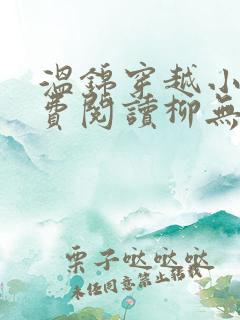 温锦穿越小
费阅读柳无
栗子哒哒哒
未经同意禁止转载